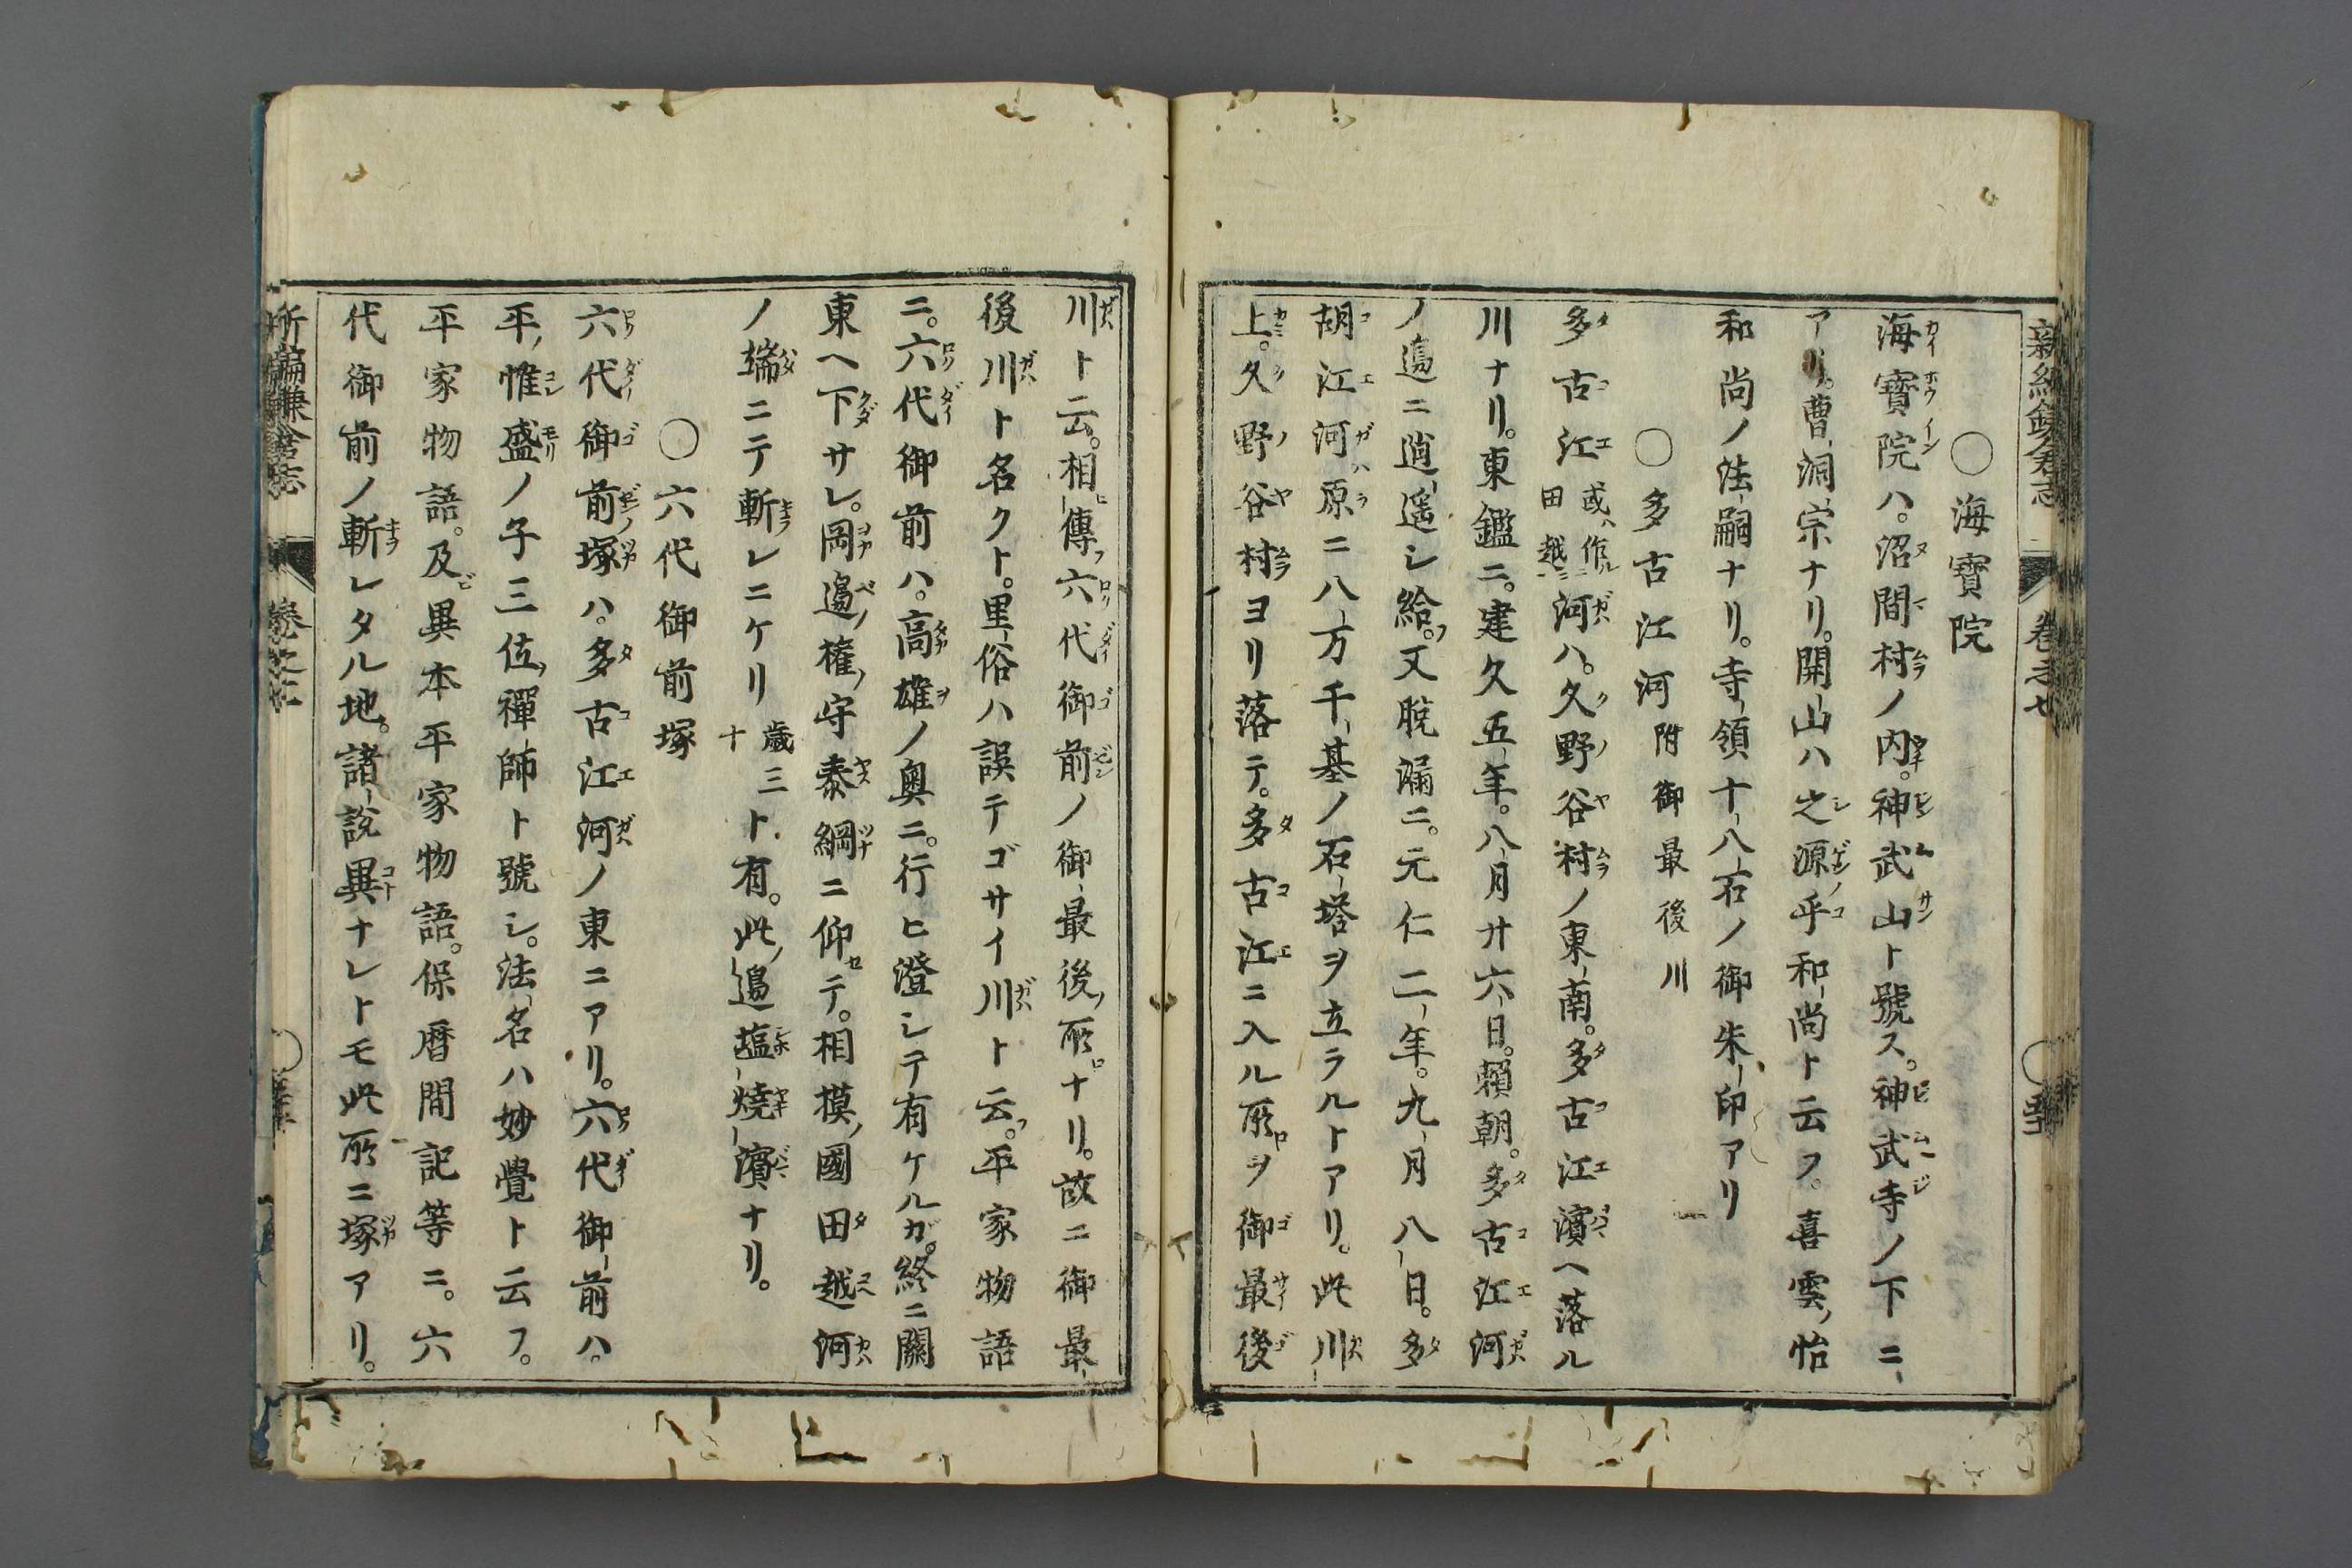 新編鎌倉志 卷之七
○海寶院
海寶院ハ。沼間村ノ内。神武山ト號ス。神武寺ノ下ニ
アリ。曹洞宗ナリ。開山ハ之源乎和尚ト云フ。喜雲怡
和尚ノ法嗣ナリ。寺領十八石ノ御朱印アリ
○多古江河 附御最後川
多古江 或ハ作ル田越ニ 河ハ。久野谷村ノ東南。多古江濱ヘ落ル
川ナリ。東鑑ニ。建久五年。八月廿六日。賴朝。多古江河
ノ邉ニ逍遥シ給フ。又脱漏ニ。元仁二年。九月八日。多
胡江河原ニ八万千基ノ石塔ヲ立ラルトアリ。此川
上。久野谷村ヨリ落テ。多古江ニ入ル所ヲ御最後
川ト云。相傳フ六代御前ノ御最後ノ所ナリ。故ニ御最
後川ト名クト。里俗ハ誤テゴサイ川ト云フ。平家物語
ニ。六代御前ハ。高雄ノ奥ニ。行ヒ澄シテ有ケルガ。終ニ關
東ヘ下サレ。岡邉ノ權守泰綱ニ仰セテ。相摸ノ國田越河
ノ端ニテ斬レニケリ 歳三十 ト有。此ノ邉塩燒濱ナリ。
○六代御前塚
六代御前ノ塚ハ。多古江河ノ東ニアリ。六代御前ハ。
平ノ惟盛ノ子三位ノ禪師ト號シ。法名ハ妙覺ト云フ。
平家物語。及ビ異本平家物語。保暦間記等ニ。六
代御前ノ斬レタル地。諸説異ナレトモ此所ニ塚アリ。
新編鎌倉志 卷之七